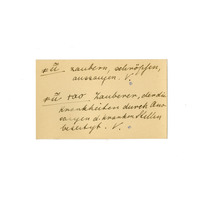 zaubern, schröpfen,
aussaugen. V.
rao Zauberer, der die
Krankheiten durch Aus-
saugen d. kranken Stellen
beseitigt. V.